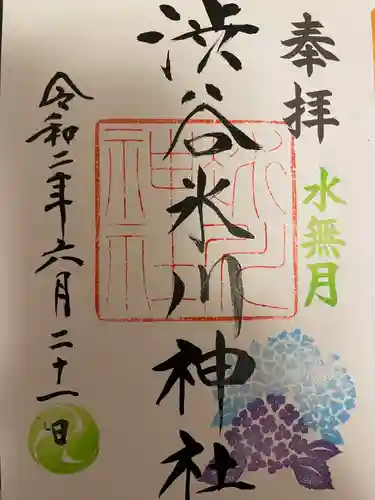 奉拝
水無月
渋谷氷川神社
令和二年六月二十一日